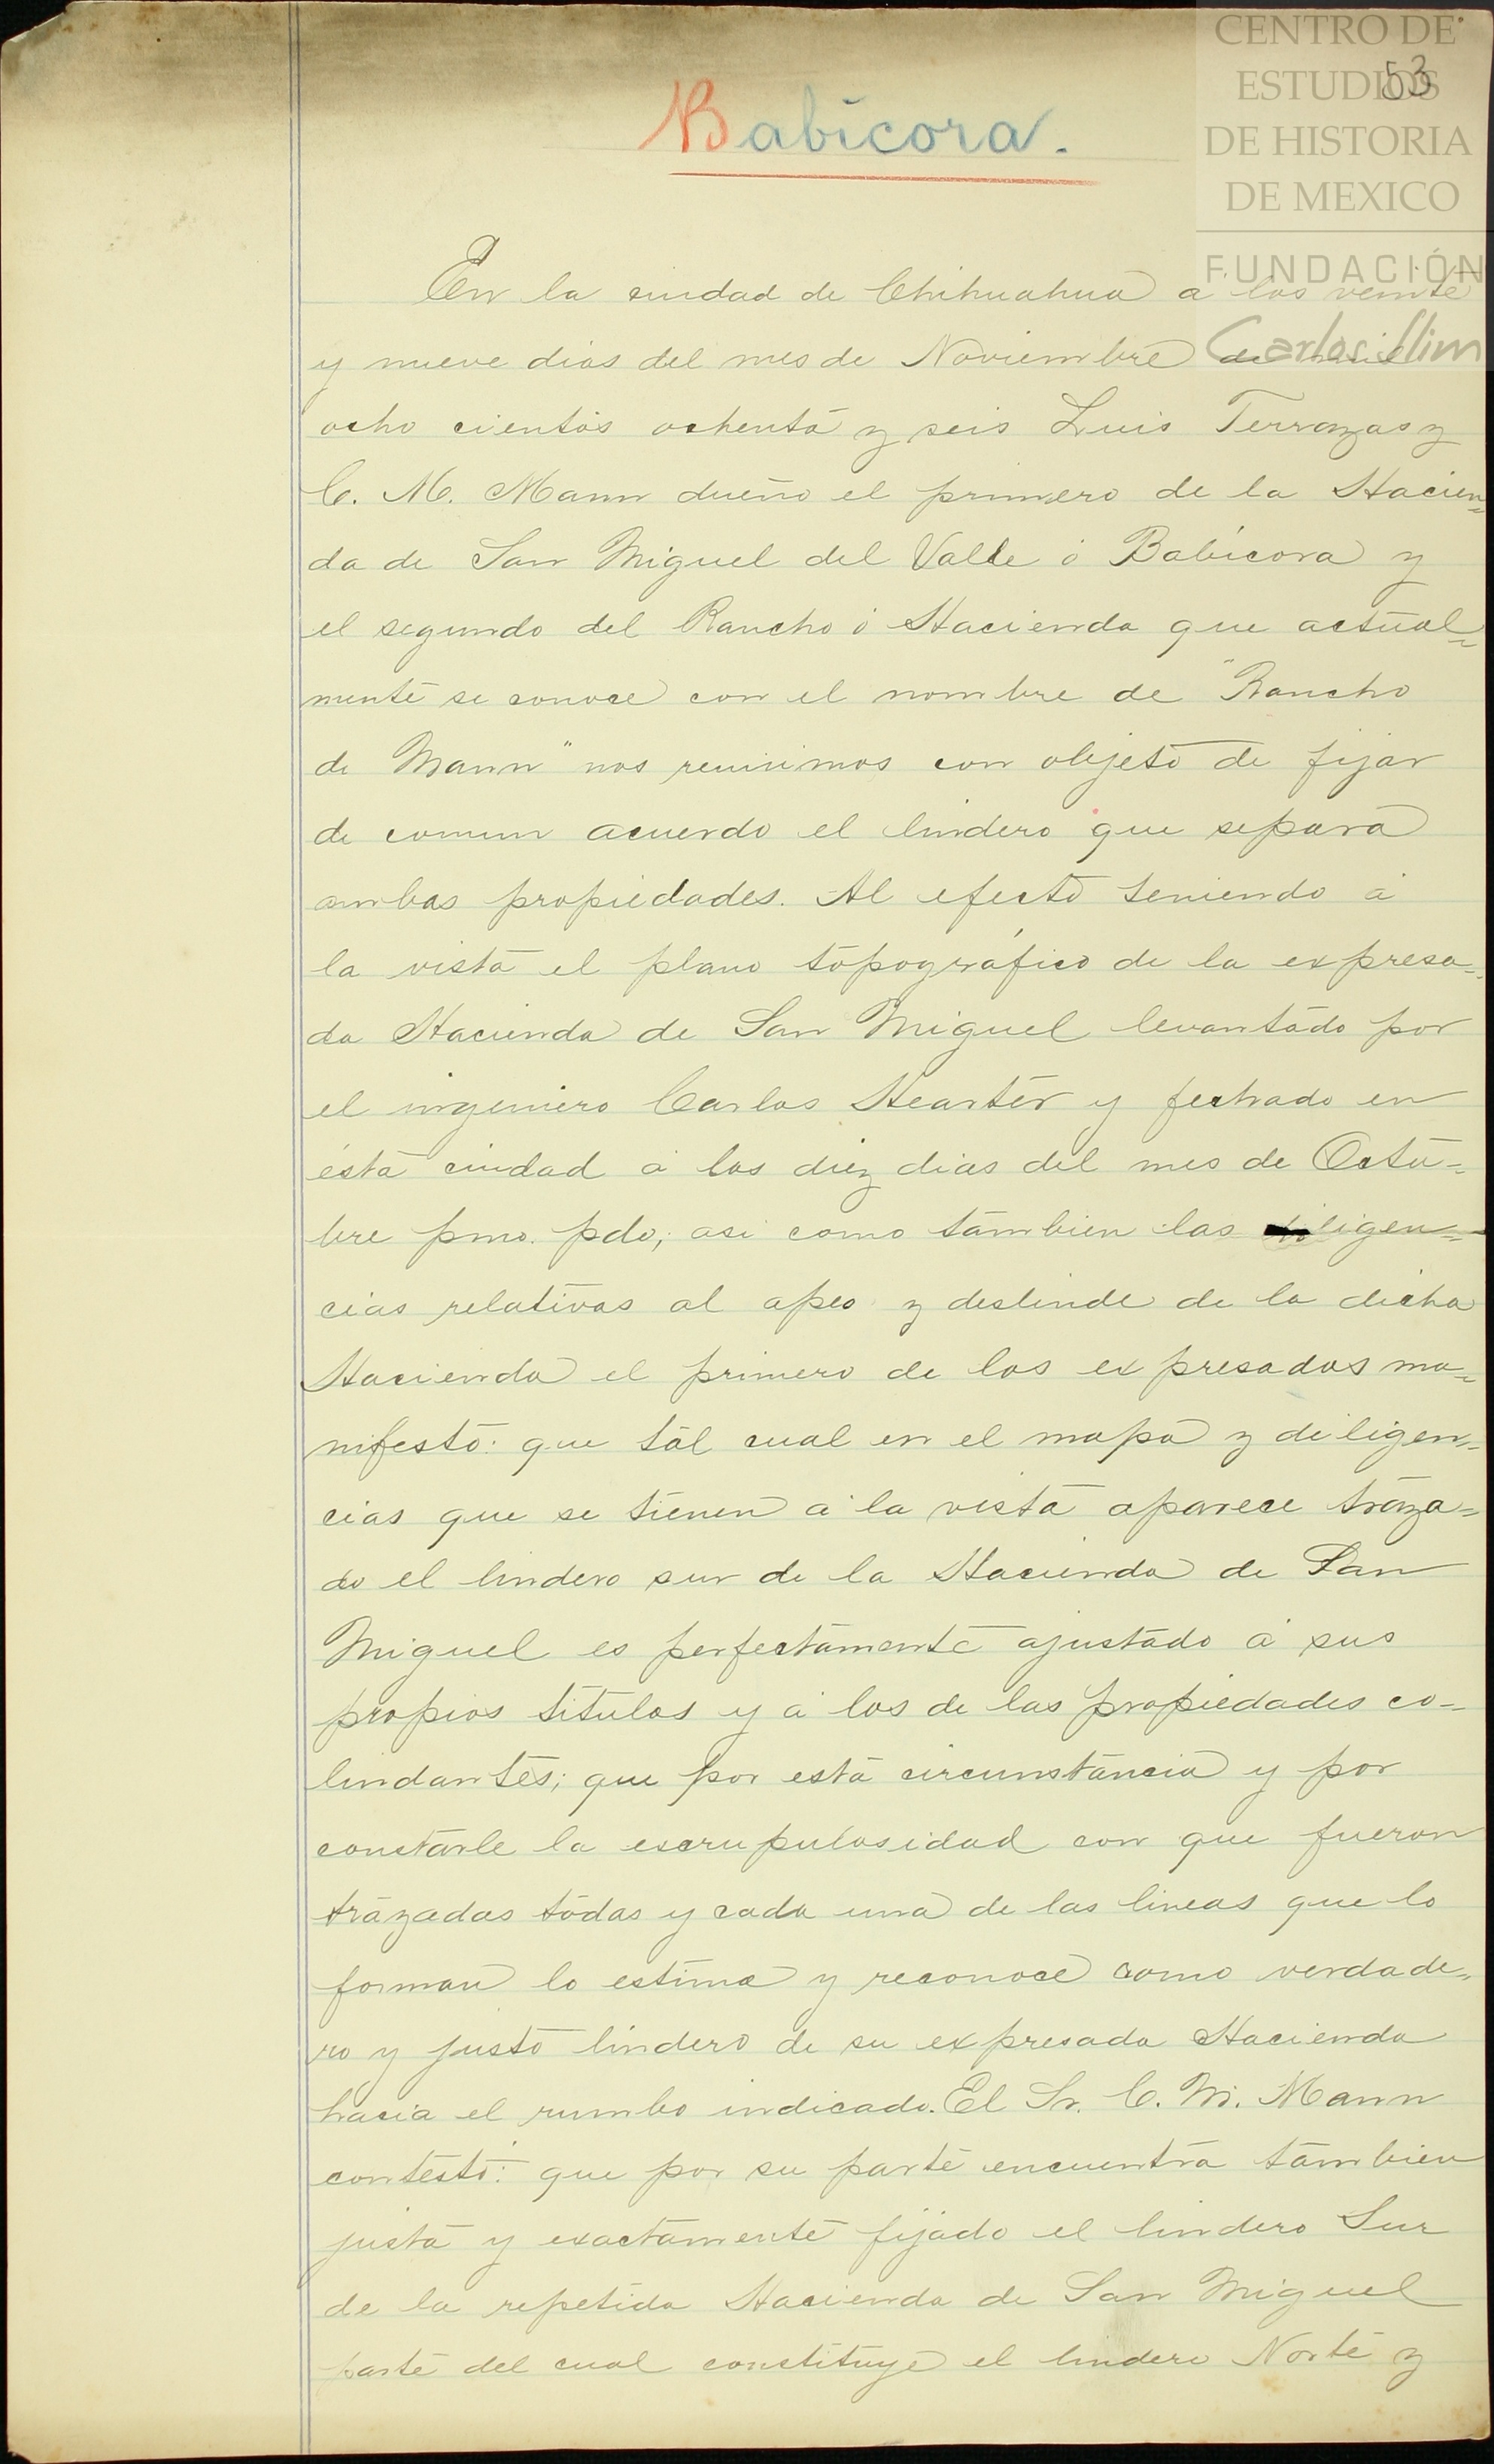 CENTRO DE
ESTUDIOS
DE HISTORIA
DE MEXICO
FUNDACIÓN
Carlos Slim
53
Babícora.
En la ciudad de Chihuahua a los veinte
y nueve dias del mes de Noviembre de mil
ocho cientos ochenta y seis Luis Terrazas y
C. M. Mann dueño el primero de la Hacien=
da de San Miguel del Valle ó Babícora y
el segundo del Rancho ó Hacienda que actual=
mente se conoce con el nombre de "Rancho
de Mann" nos reunimos con objeto de fijar
de comun acuerdo el lindero que separa
ambas propiedades. Al efecto teniendo á
la vista el plano topográfico de la expresa=
da Hacienda de San Miguel levantado por
el ingeniero Carlos Hearter y fechado en
ésta ciudad á los diez dias del mes de Octu=
bre pmo. pdo; asi como tambien las diligen=
cias relativas al apeo y deslinde de la dicha
Hacienda el primero de los expresados ma=
nifestó: que tal cual en el mapa y diligen=
cias que se tienen á la vista aparece traza=
do el lindero sur de la Hacienda de San
Miguel es perfectamente ajustado á sus
propios titulos y á los de las propiedades co=
lindantes; que por esta circunstancia y por
constarle la escrupulosidad con que fueron
trazadas todas y cada una de las lineas que lo
forman lo estima y reconoce como verdade=
ro y justo lindero de su expresada Hacienda
hacia el rumbo indicado. El Sr. C. M. Mann
contestó: que por su parte encuentra tambien
justa y exactamente fijado el lindero Sur
de la repetida Hacienda de San Miguel
parte del cual constituye el lindero Norte y